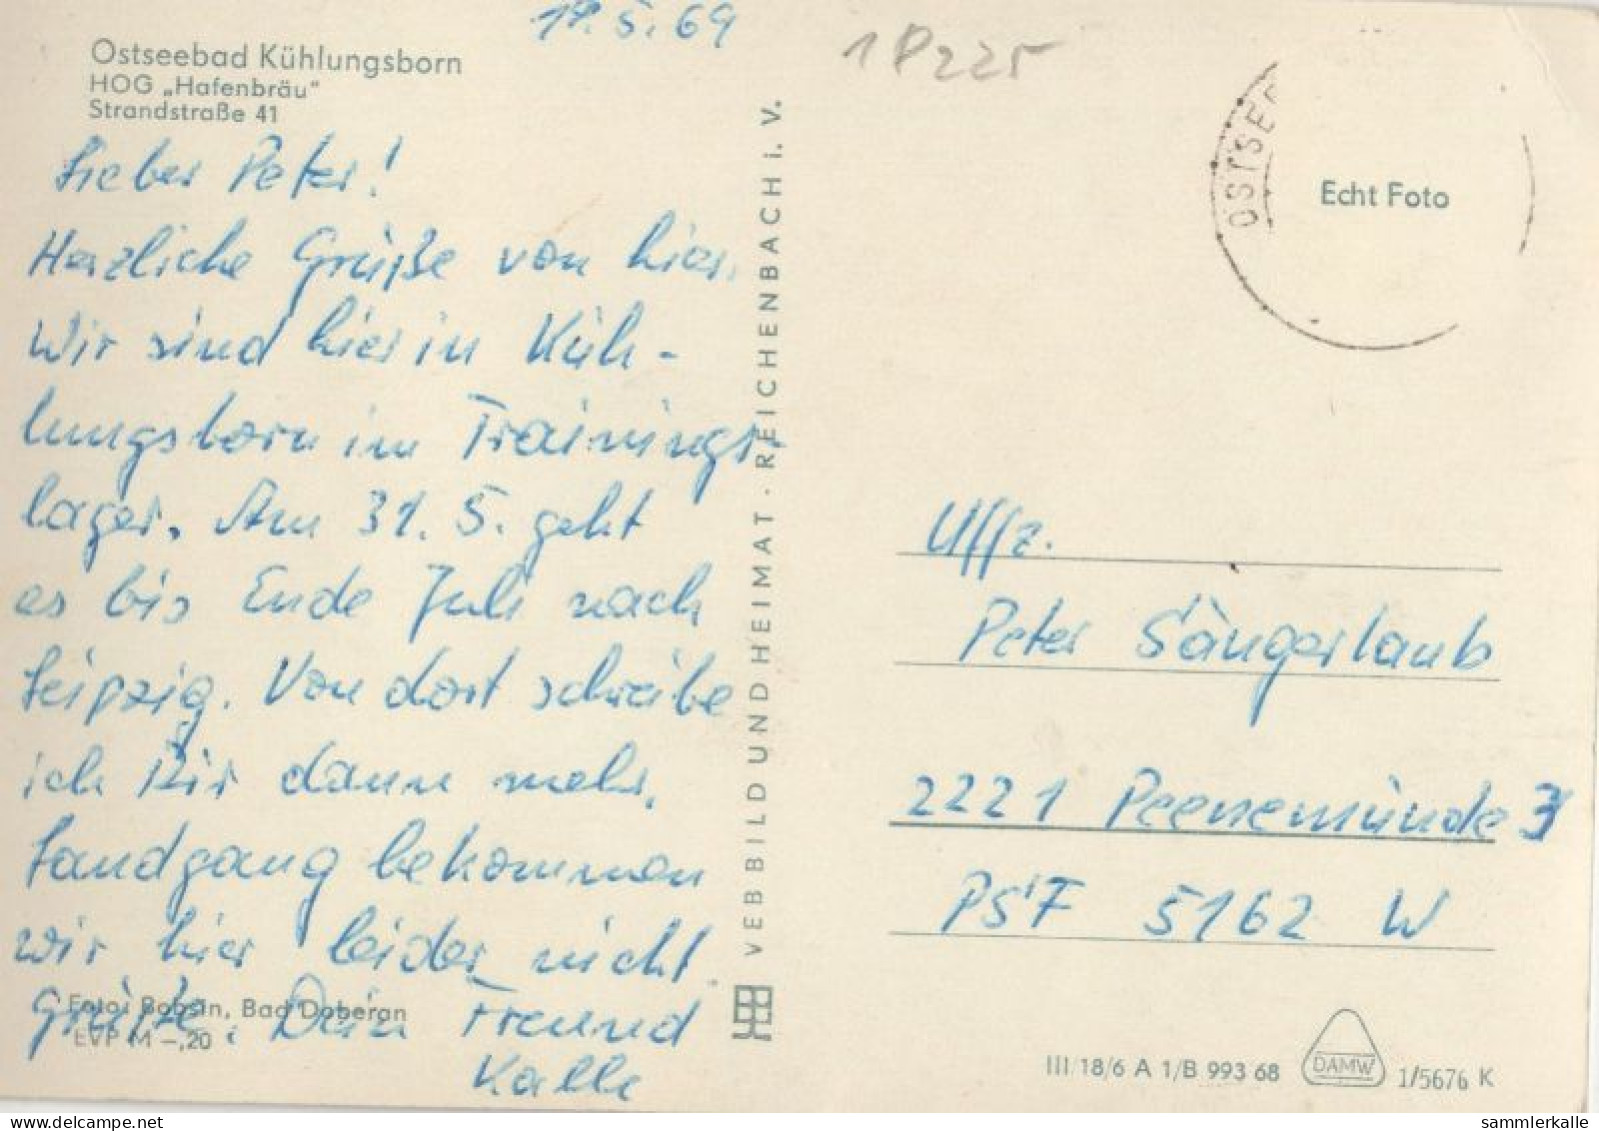 19.5.69
1P225
Ostseebad Kühlungsborn
HOG „Hafenbräu"
Strandstraße 41
Lieber Peter!
Herzliche Grüße von hier.
Wir sind hier in Küh-
lungsborn im Trainings-
lager. Am 31. 5. geht
es bis Ende Juli nach
Leipzig. Von dort schreibe
ich Dir dann mehr.
Landgang bekommen
wir hier leider nicht.
Grüße. Dein Freund
Kalle
Foto: Bobsin, Bad Doberan
EVP M –,20
VEB BILD UND HEIMAT · REICHENBACH i. V.
OSTSEE
Echt Foto
Uffz.
Peter Sängerlaub
2221 Peenemünde 3
PSF 5162 W
III/18/6 A 1/B 993 68
DAMW
1/5676 K
www.delcampe.net
sammlerkalle